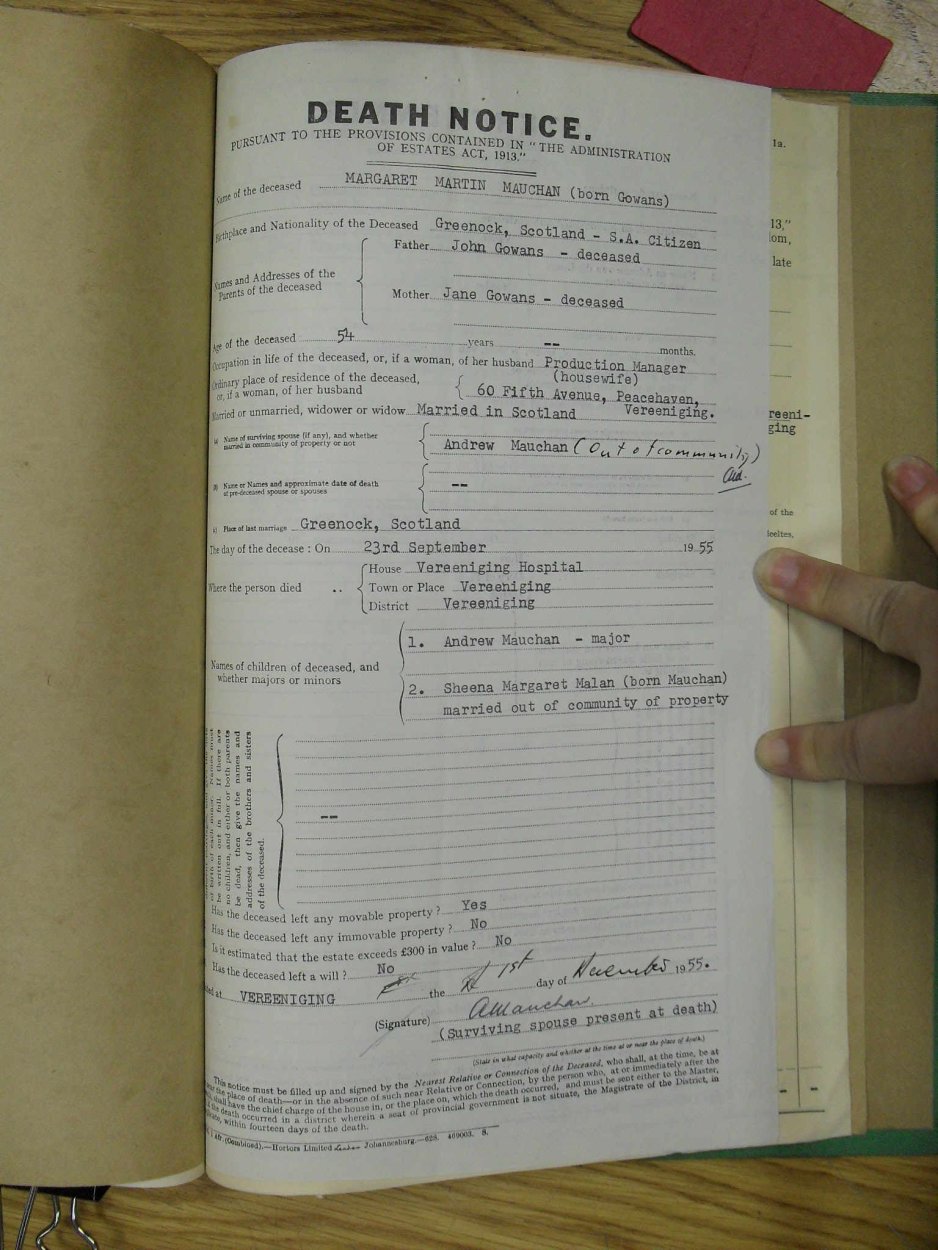 DEATH NOTICE.
PURSUANT TO THE PROVISIONS CONTAINED IN "THE ADMINISTRATION
OF ESTATES ACT, 1913."
Name of the deceased MARGARET MARTIN MAUCHAN (born Gowans)
Birthplace and Nationality of the Deceased Greenock, Scotland - S.A. Citizen
Names and Addresses of the
Parents of the deceased
Father John Gowans - deceased
Mother Jane Gowans - deceased
Age of the deceased 54 years -- months.
Occupation in life of the deceased, or, if a woman, of her husband Production Manager
(housewife)
Ordinary place of residence of the deceased,
or, if a woman, of her husband
60 Fifth Avenue, Peacehaven,
Vereeniging.
Married or unmarried, widower or widow Married in Scotland
(a) Name of surviving spouse (if any), and whether
married in community of property or not
Andrew Mauchan (Out of community)
(b) Name or Names and approximate date of death
of pre-deceased spouse or spouses
--
(c) Place of last marriage Greenock, Scotland
The day of the decease : On 23rd September 1955
Where the person died ..
House Vereeniging Hospital
Town or Place Vereehiging
District Vereeniging
Names of children of deceased, and
whether majors or minors
1. Andrew Mauchan - major
2. Sheena Margaret Malan (born Mauchan)
married out of community of property
of birth of each minor. Names must
be written out in full. If there are
no children, and either or both parents
be dead, then give the names and
addresses of the brothers and sisters
of the deceased.
--
Has the deceased left any movable property ? Yes
Has the deceased left any immovable property ? No
Is it estimated that the estate exceeds £300 in value ? No
Has the deceased left a will ? No
VEREENIGING the 1st day of November 1955.
(Signature) AMauchan.
(Surviving spouse present at death)
(State in what capacity and whether at the time at or near the place of death.)
This notice must be filled up and signed by the Nearest Relative or Connection of the Deceased, who shall, at the time, be at
the place of death—or in the absence of such near Relative or Connection, by the person who, at or immediately after the
shall have the chief charge of the house in, or the place on, which the death occurred, and must be sent either to the Master,
the death occurred in a district wherein a seat of provincial government is not situate, the Magistrate of the District, in
within fourteen days of the death.
(Combined).—Hortors Limited Johannesburg.—628. 469003. S.
1a.
13,"
om,
late
reeni-
ging
of the